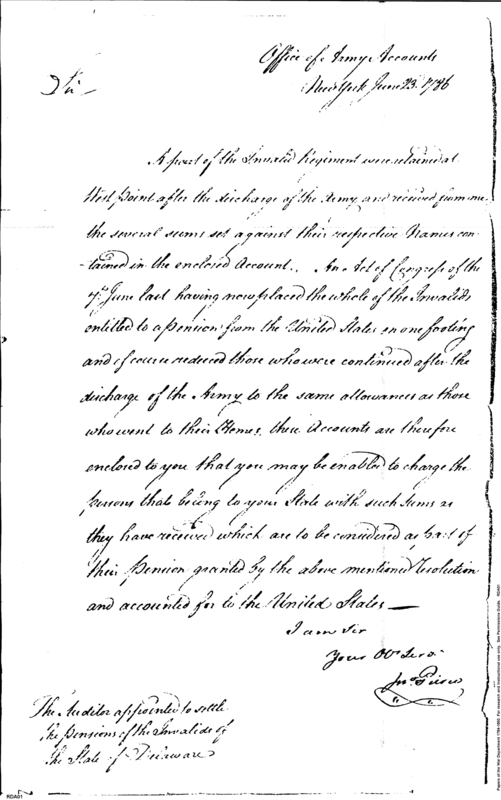 Office of Army Accounts
New York June 23. 1786
Sir
A part of the Invalid Regiment were retained at
West point after the discharge of the Army and received from me
the several sums set against their respective Names con
-tained in the enclosed Account. An Act of Congress of the
7th June last having now placed the whole of the Invalids
entitled to a pension from the United States on one footing
and of course reduced those who were continued after the
discharge of the Army to the same allowances as those
who went to their Homes, these Accounts are therefore
enclosed to you that you may be enabled to charge the
persons that belong to your State with such sums as
they have received which are to be considered as part of
their Pension granted by the above mentioned Resolution
and accounted for to the United States —
I am Sir
Your Ob Serv
Jno Pierce
The Auditor appointed to settle
the pensions of the Invalids of
the State of Delaware
RDA01